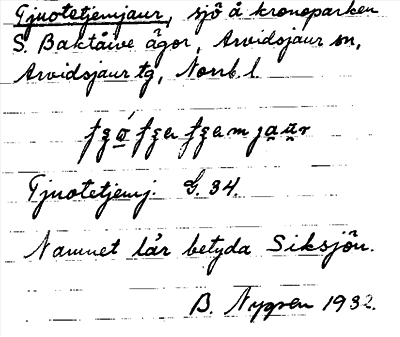 Tjuotetjemjaur, sjö å kronoparken
S. Baktåive ägor, Arvidsjaur sn,
Arvidsjaur tg, Norrb. l.
Tjuotetjemj. G. 34.
Namnet lär betyda Siksjön.
B. 1932.